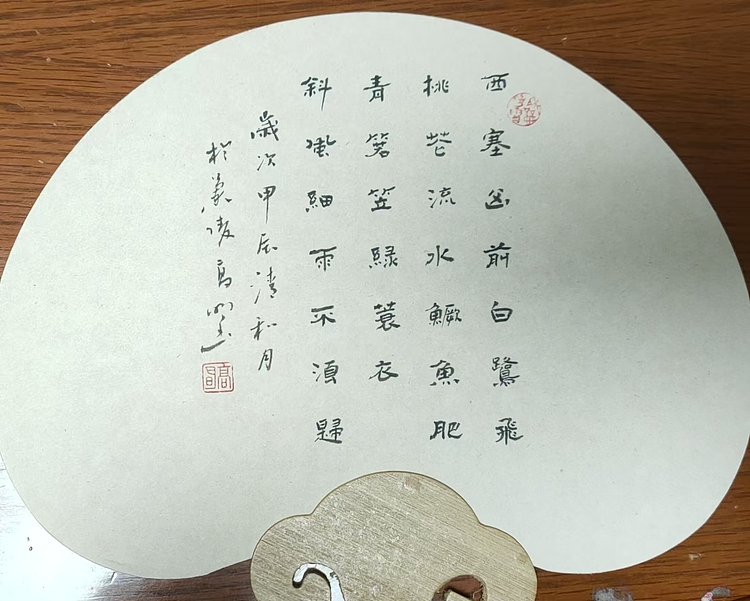 西塞山前白鷺飛
桃花流水鱖魚肥
青箬笠綠蓑衣
斜風細雨不須歸
歲次甲辰清和月
於羲陵高